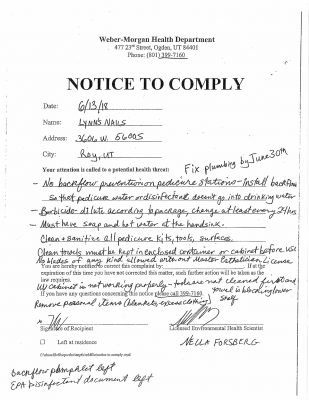 Weber-Morgan Health Department
477 23rd Street, Ogden, UT 84401
Phone: (801) 399-7160
NOTICE TO COMPLY
Date: 6/13/18
Name: Lynn's Nails
Address: 3606 W. 5600 S
City: Roy, UT
Fix plumbing by June 30th
Your attention is called to a potential health threat:
- No backflow prevention on pedicure stations - Install backflow
so that pedicure water or disinfectant doesn't go into drinking water
- Barbicide - dilute according to package, change at least every 24 hrs
- Must have soap and hot water at the handsink.
Clean + sanitize all pedicure kits, tools, surfaces.
Clean towels must be kept in enclosed container or cabinet before use
No blades of any kind allowed without Master Esthetician License
You are hereby notified to correct this complaint by: If at the
expiration of this time you have not corrected this matter, such further action will be taken as the
law requires.
UV cabinet is not working properly - tools are not cleaned first and
towel is blocking lower
shelf
If you have any questions concerning this notice please call 399-7160.
Remove personal items (blankets, excess clothing)
Signature of Recipient
Licensed Environmental Health Scientist
☐ Left at residence
Nella Forsberg
backflow pamphlet left
EPA disinfectant document left